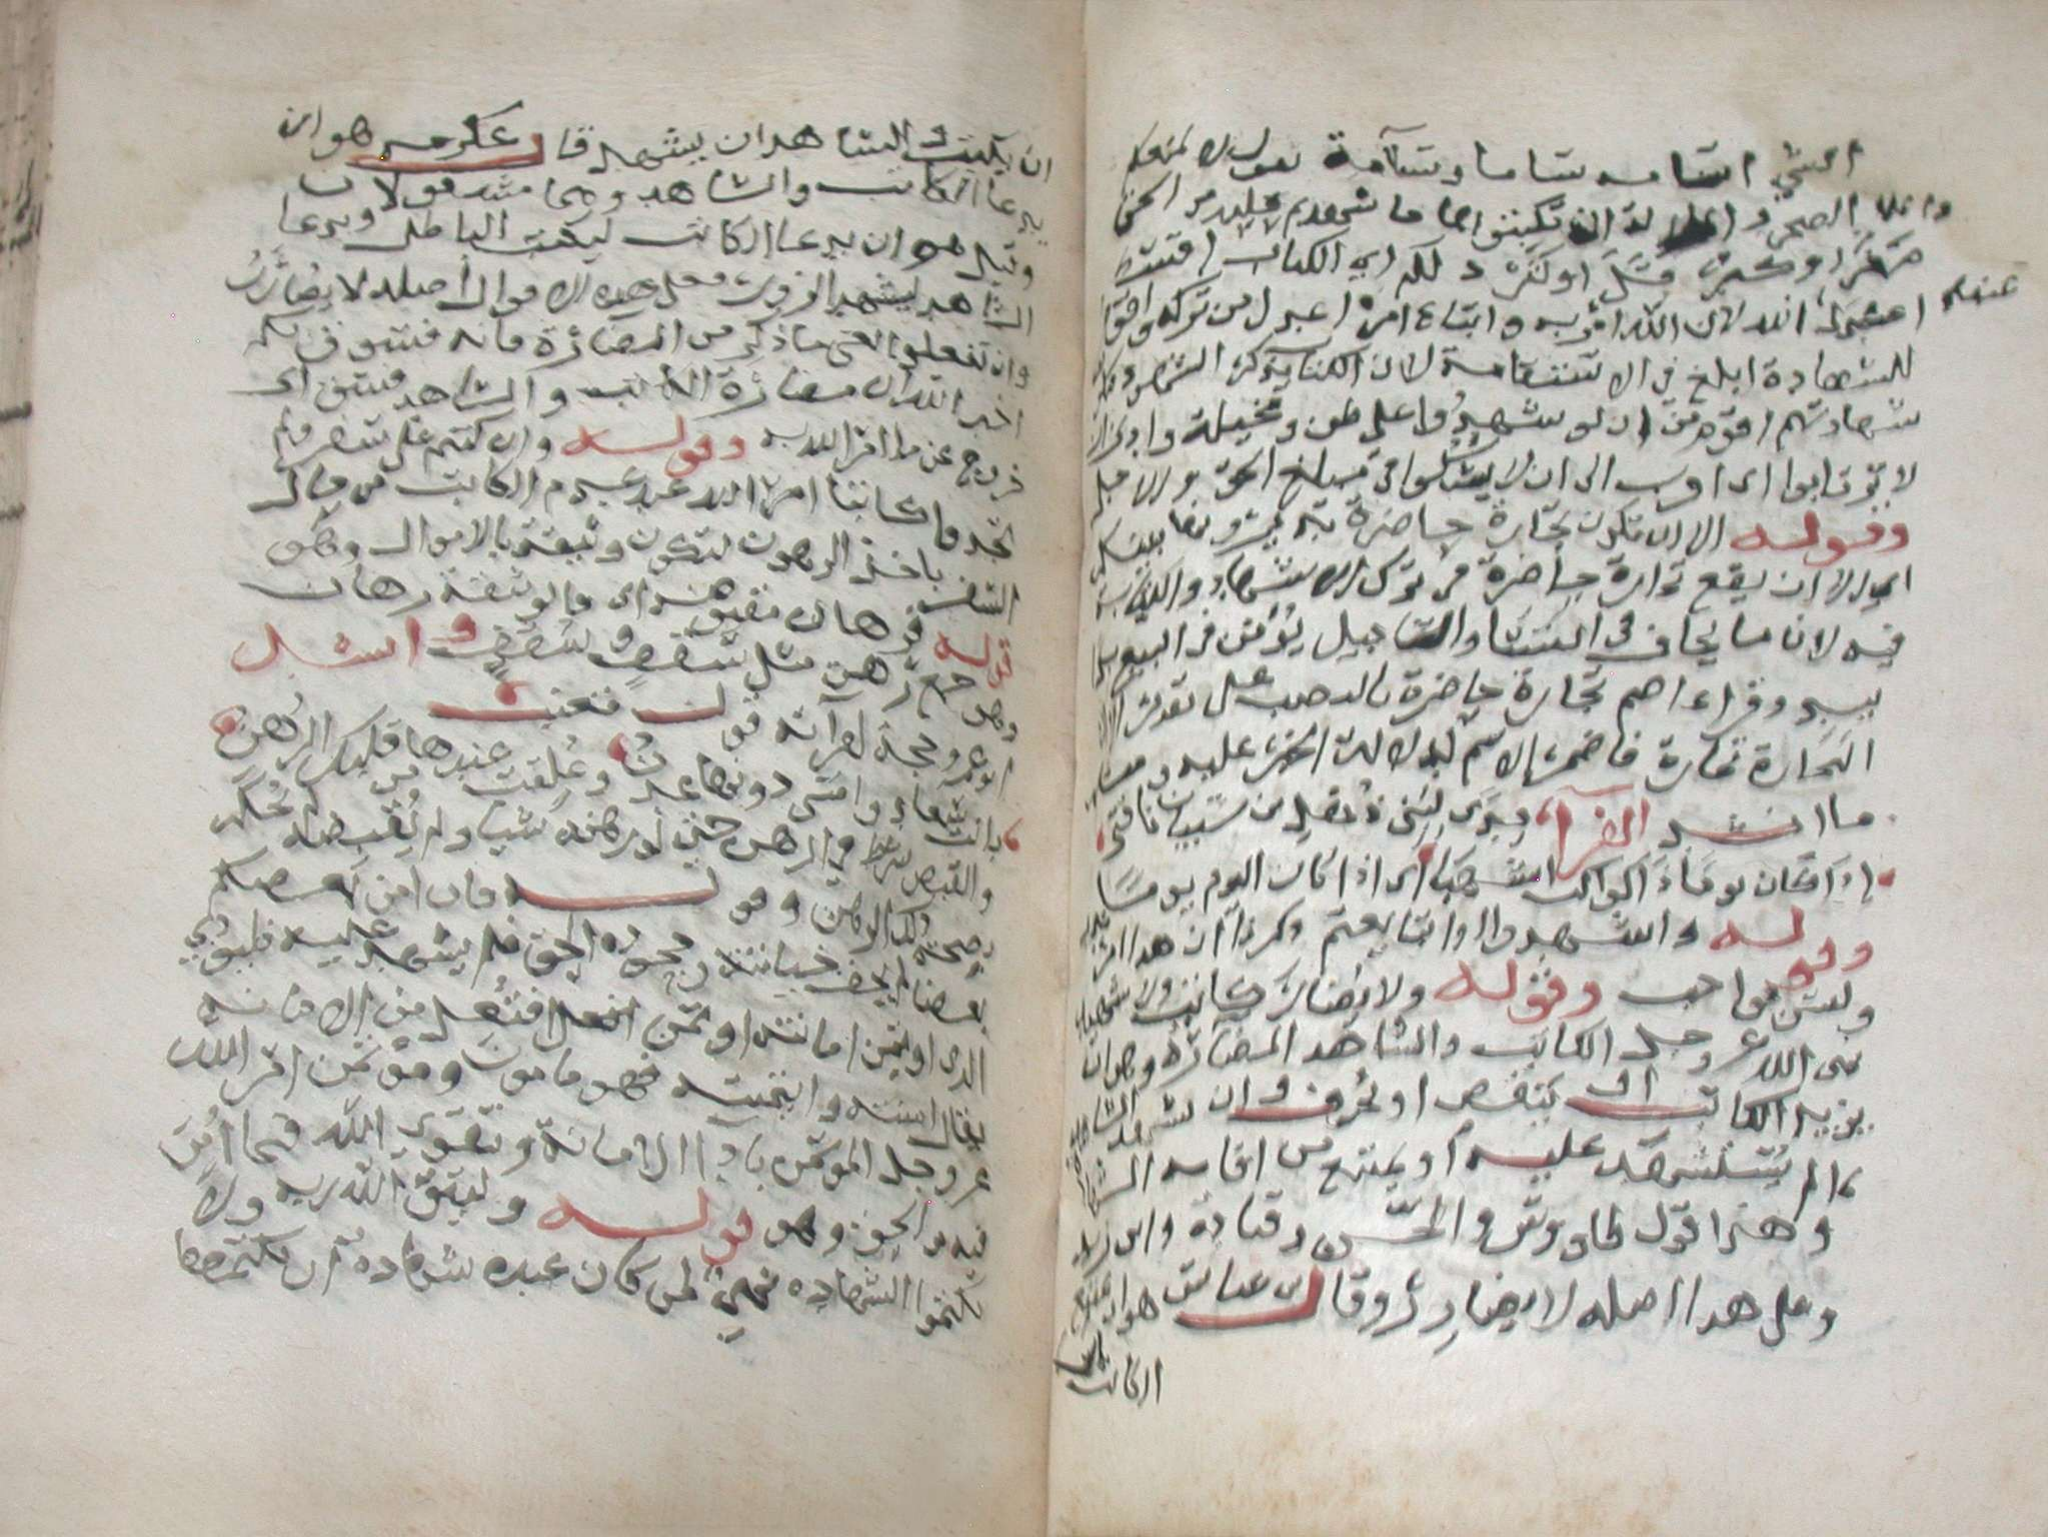 الشي اسامه سئاما وسآمة يقول لا يمنعكم
الضجر والملالة ان تكتبوا ما شهدتم عليه من الحق
صغر او كبر قل او كثر ذلكم اي الكتاب اقسط
عند الله لان الله امر به واتباع امره اعدل من تركه واقوم
للشهادة ابلغ في الاستقامة لان الكتاب يذكر الشهود
شهادتهم اقوم من ان لو شهدوا على ظن ومخيلة وادنى ان
لا ترتابوا اي اقرب الى ان لا يشكوا في مبلغ الحق والاجل
وقوله الا ان تكون تجارة حاضرة تديرونها بينكم
اي الا ان يقع تجارة حاضرة في ترك الاشهاد والكتاب
فيه لان ما يخاف في النسا والتاجيل يؤمن في البيع يدا
بيد وقراءة عاصم تجارة حاضرة بالنصب على تقدير الا ان
التجارة تجارة فاضمر الاسم لدلالة الخبر عليه
ما انشد الفرا فدى لبني ذهل بن شيبان ناقتي
اذا كان يوما ذا كواكب اشهبا اي اذا كان اليوم يوما
وقوله واشهدوا اذا تبايعتم وذكرنا ان هذا امر
وليس بواجب وقوله ولا يضار كاتب ولا شهيد
نهى الله عز وجل الكاتب والشاهد المضارة وهو ان
يزيد الكاتب او ينقص او يحرف وان يشهد الشاهد
ما لم يستشهد عليه او يمتنع من اقامة الشهادة
وهذا قول طاووس والحسن وقتادة وابن زيد
وعلى هذا اصله لا يضارر وقال ابن عباس هو ان يمتنع
الكاتب
عنهم
ان يكتب والشاهد ان يشهد قال عكرمه هو ان
يدعا الكاتب والشاهد وهما مشغولان
وقيل هو ان يدعا الكاتب ليكتب الباطل ويدعا
الشاهد ليشهد الزور فعلى هذه الاقوال اصله لا يضارر
وان تفعلوا يعني ما ذكر من المضارة فانه فسوق بكم
اخبر الله ان مضارة الكاتب والشاهد فسق اي
خروج عن ما امر الله به وقوله وان كنتم على سفر ولم
تجدوا كاتبا امر الله عند عدم الكاتب في حال
السفر باخذ الرهون لتكون وثيقة بالاموال وهو
قوله فرهان مقبوضه اي فالوثيقة رهان
وهو جمع رهن مثل سقف وسقف وانشد
ابو عمرو حجة لقراته قول قعنب
بانت سعاد وامسى دونها عدن وغلقت عندها من قلبك الرهن
والقبض شرط في الرهن حتى لو رهنه شيا ولم يقبضه لم يحكم
بصحة ذلك الرهن وقوله فان امن بعضكم
بعضا لم يخف خيانته وجحوده الحق فلم يشهد عليه فليؤدي
الذي اوتمن امانته اوتمن افتعل من الامانة
يقال امنته وائتمنته فهو مامون وموتمن امر الله
عز وجل الموتمن باداا الامانة وتقوى الله فيما اؤتمن
فيه من الحق وهو قوله وليتق الله ربه ولا
تكتموا الشهاده نهى من كان عنده شهاده ان يكتمها